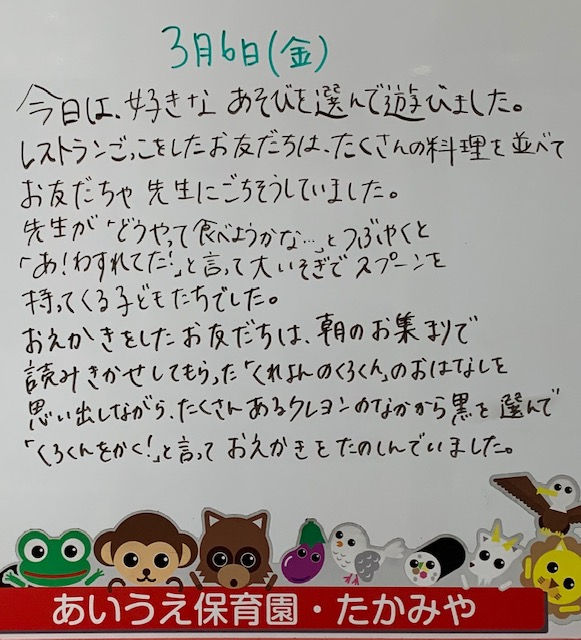 3月6日(金)
今日は、好きな あそびを選んで遊びました。
レストランごっこをしたお友だちは、たくさんの料理を並べて
お友だちや 先生にごちそうしていました。
先生が「どうやって食べようかな…」とつぶやくと
「あ!わすれてた!」と言って大いそぎでスプーンを
持ってくる子どもたちでした。
おえかきをしたお友だちは、朝のお集まりで
読みきかせしてもらった「くれよんのくろくん」のおはなしを
思い出しながら、たくさんあるクレヨンのなかから黒を選んで
「くろくんをかく!」と言って おえかきをたのしんでいました。
あいうえ保育園・たかみや